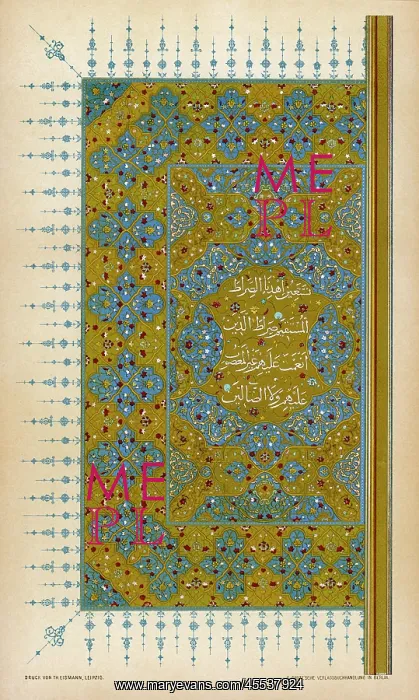 ME
PL
نستعين اهدنا الصراط
المستقيم صراط الذين
أنعمت عليهم غير المغضوب
عليهم ولا الضالين
ME
PL
DRUCK VON TH. EISMANN, LEIPZIG.
VERLAGSBUCHHANDLUNG IN BERLIN.
www.maryevans.com/45537924